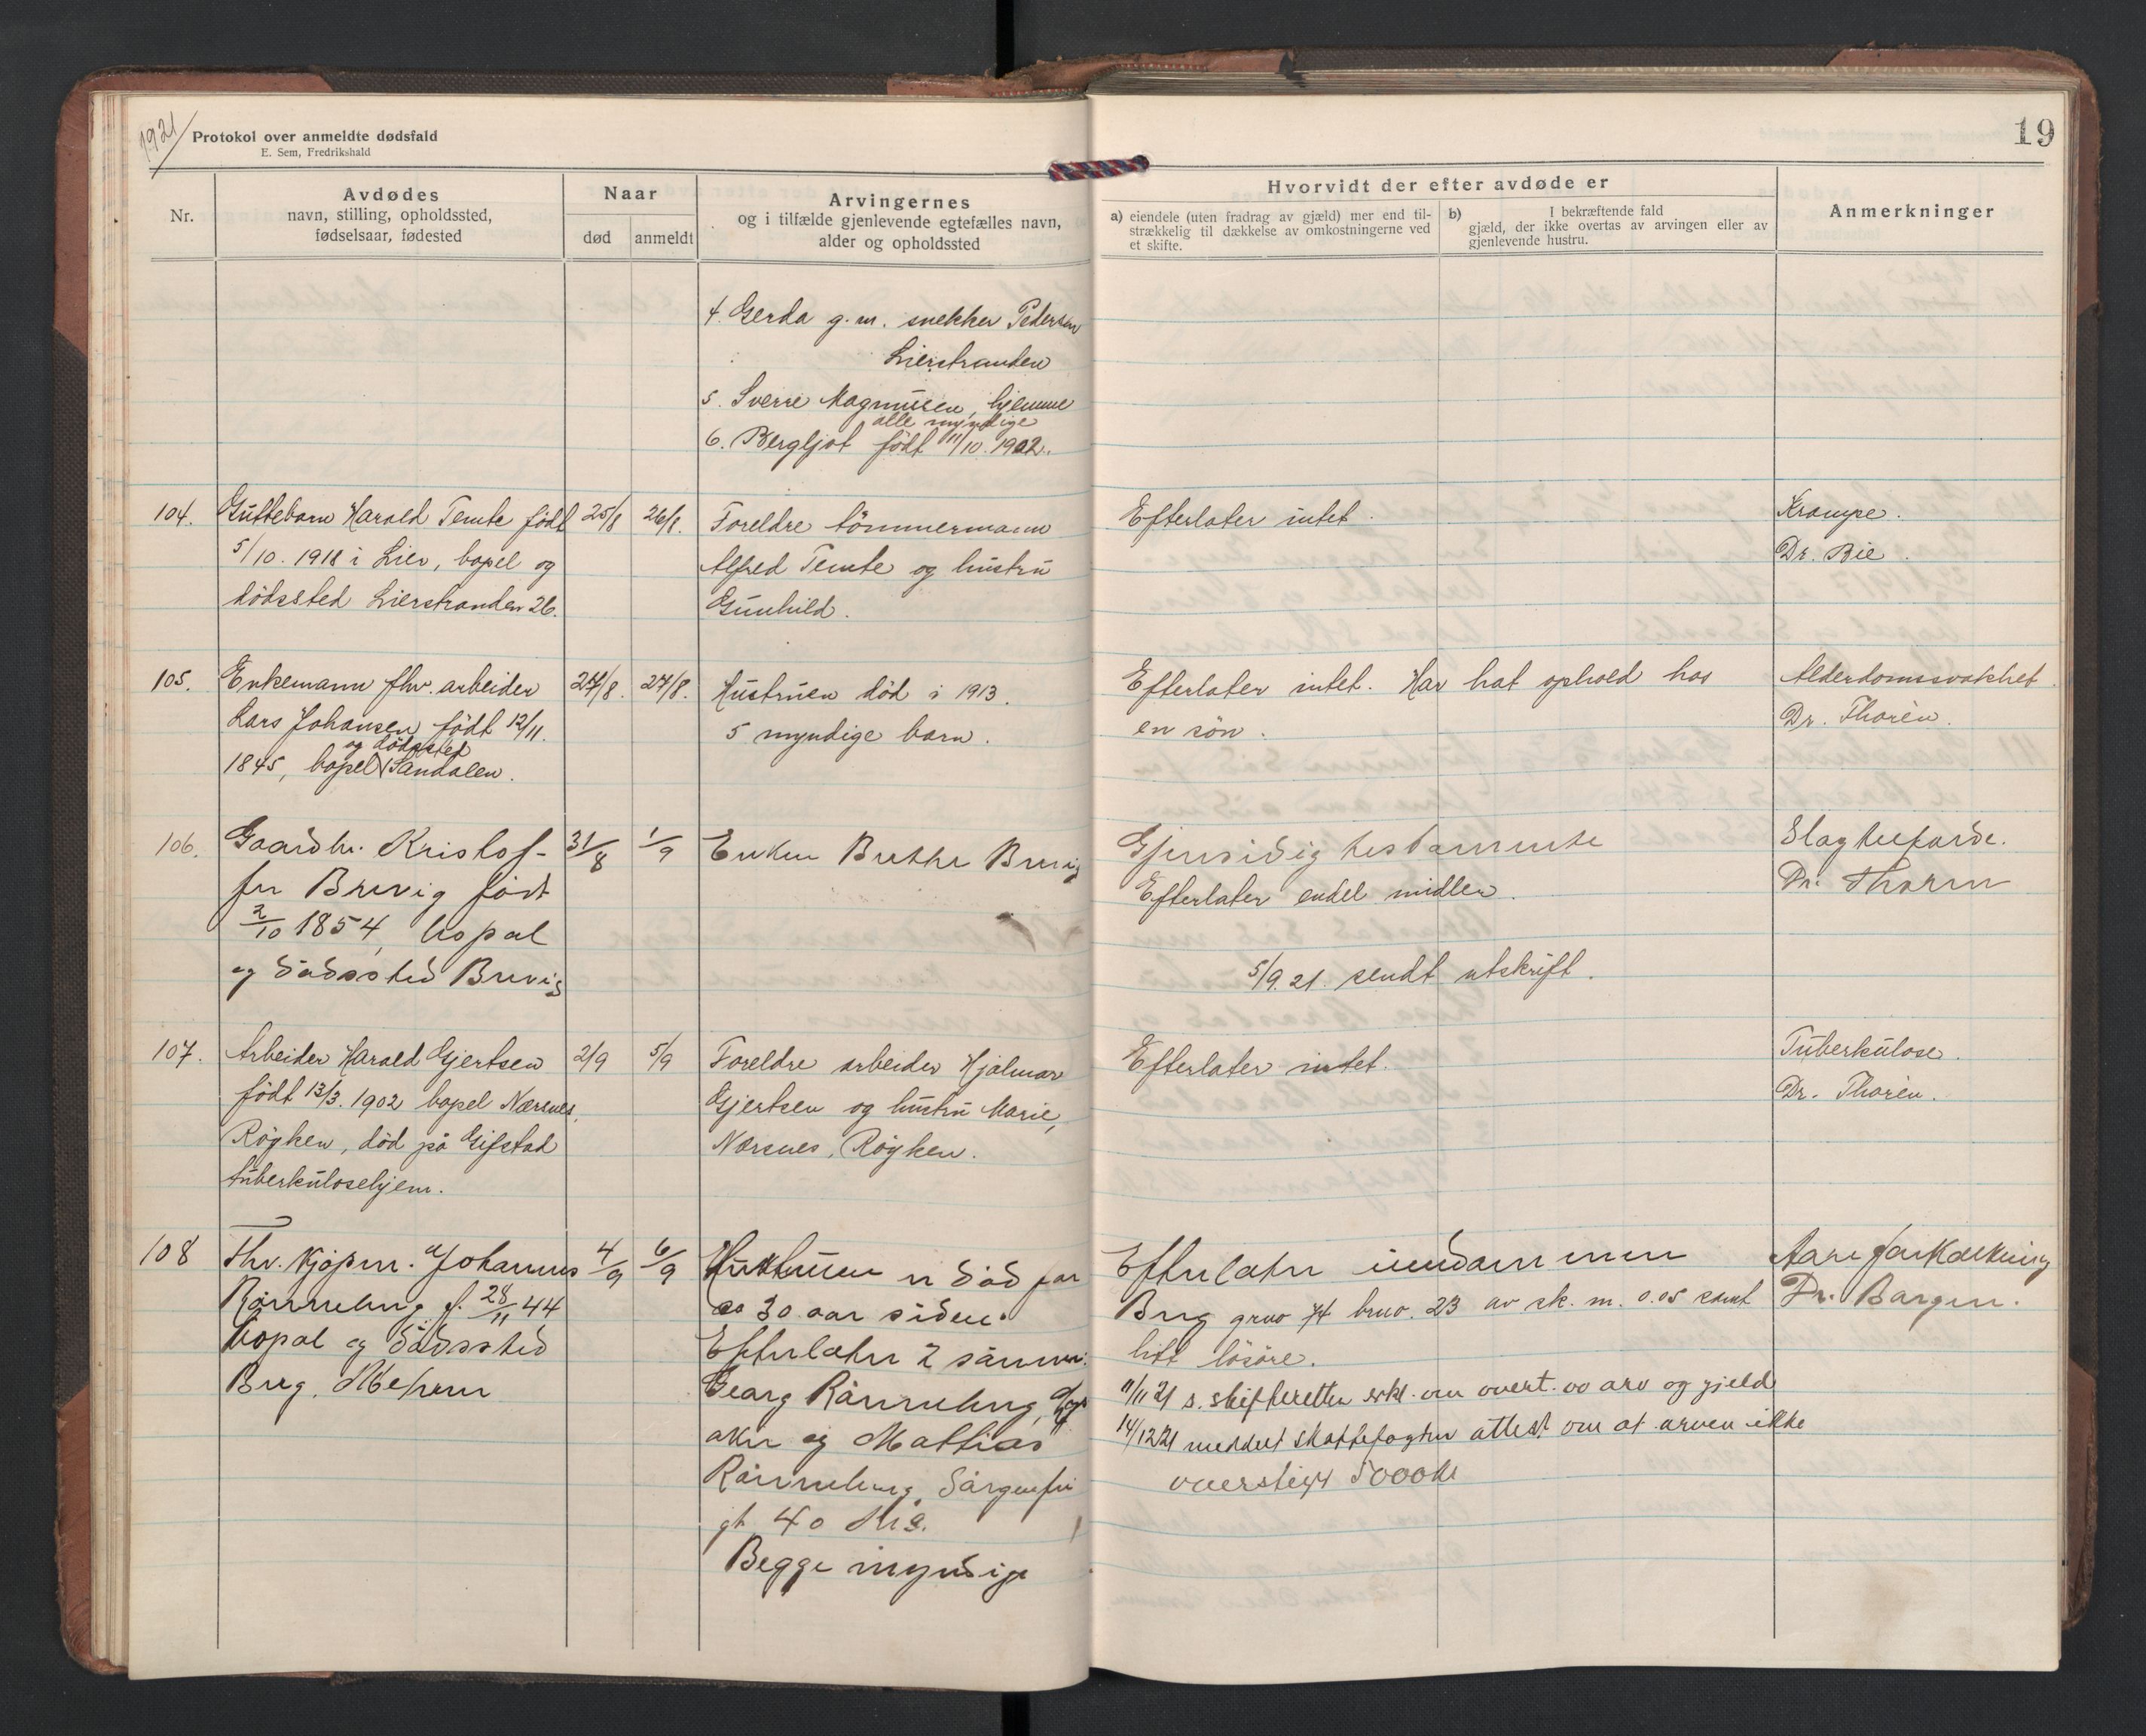 1921
Protokol over anmeldte dødsfald
E. Sem, Fredrikshald
19
Nr.
Avdødes
navn, stilling, opholdssted,
fødselsaar, fødested
Naar
død
anmeldt
Arvingernes
og i tilfælde gjenlevende egtefælles navn,
alder og opholdssted
Hvorvidt der efter avdøde er
a) eiendele (uten fradrag av gjæld) mer end til-
strækkelig til dækkelse av omkostningerne ved
et skifte.
b) I bekræftende fald
gjæld, der ikke overtas av arvingen eller av
gjenlevende hustru.
Anmerkninger
4. Gerda g.m. snekker Pedersen
Lierstranden
5. Sverre Magnusen, hjemme
alle myndige
6. Bergljot født 11/10. 1902.
104. Guttebarn Harald Temte født
5/10. 1918 i Lier, bopel og
dödssted Lierstranden 26.
25/8
26/8.
Foreldre tömmermann
Alfred Temte og hustru
Gunhild.
Efterlater intet.
Krampe.
Dr. Bie.
105. Enkemann fhv. arbeider
Lars Johansen født 12/11.
og dödssted
1845, bopel Sandalen.
24/8.
27/8.
Hustruen död i 1913.
5 myndige barn.
Efterlater intet. Har hat ophold hos
en sön.
Alderdomssvakhet.
Dr. Thorén.
106. Gaardbr. Kristof-
fer Brevig født
2/10 1854, bopæl
og dödssted Brevig
31/8
1/9
Enken Brethe Brevig
Gjensidig testamente
Efterlater endel midler.
5/9.21. sendt utskrift.
Slagtilfælde.
Dr. Thoren
107. Arbeider Harald Gjertsen
født 13/3. 1902 bopel Nærsnes,
Röyken, död på Gifstad
tuberkulosehjem.
2/9
5/9
Foreldre arbeider Hjalmar
Gjertsen og hustru Marie,
Nærsnes, Röyken.
Efterlater intet.
Tuberkulose.
Dr. Thorén.
108 Fhv. kjöpm. Johannes
Rönneberg f. 28/11 44
bopæl og dödssted
Brug.
4/9
6/9
Hustruen er död for
ca 30 aar siden.
Efterlater 2 sönner:
Georg Rönneberg,
aker og Mathias
Rönneberg, Sorgenfri
gt. 40 Kra.
Begge myndige
Efterlater eiendommen
Brug grno 74 brno. 23 av sk. m. 0.05 samt
litt lösöre.
11/11 21 s. skifteretten erkl. om overt. av arv og gjeld
14/12 21 meddelt skattefogden attest om at arven ikke
overstiger 5000 kr
Aareforkalkning
Dr. Borgen.